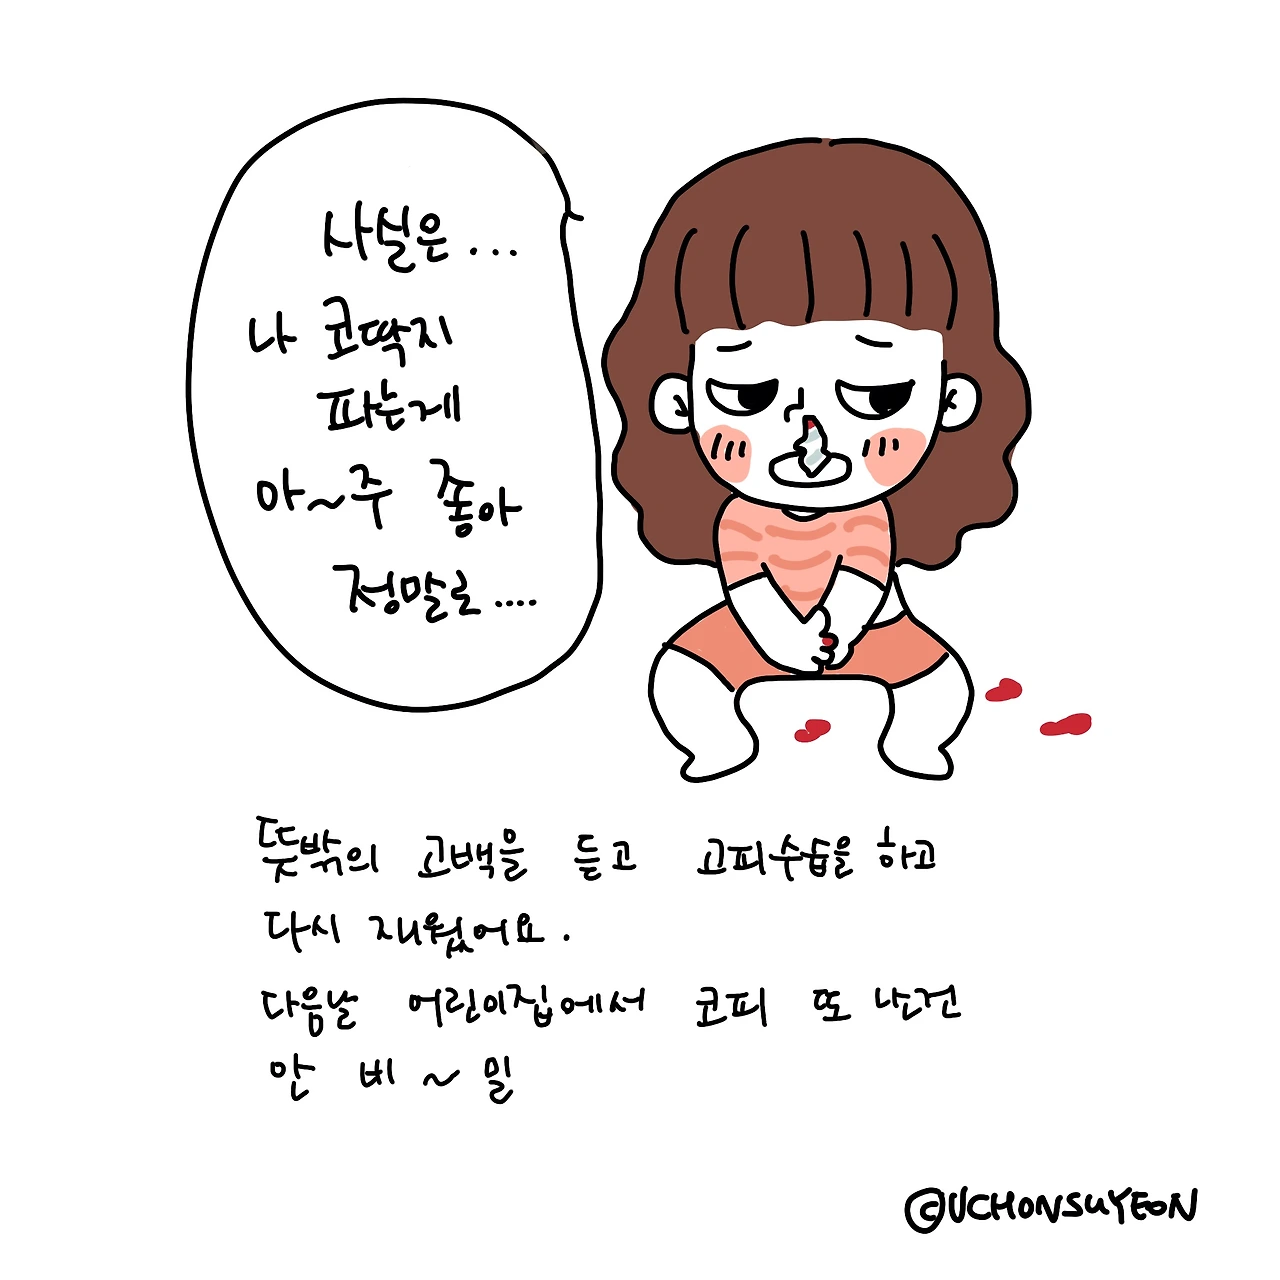 사실은...
나 코딱지
파는게
아~주 좋아
정말로....
뜻밖의 고백을 듣고 코피수습을 하고
다시 재웠어요.
다음날 어린이집에서 코피 또 난건
안 비~밀
©UCHONSUYEON